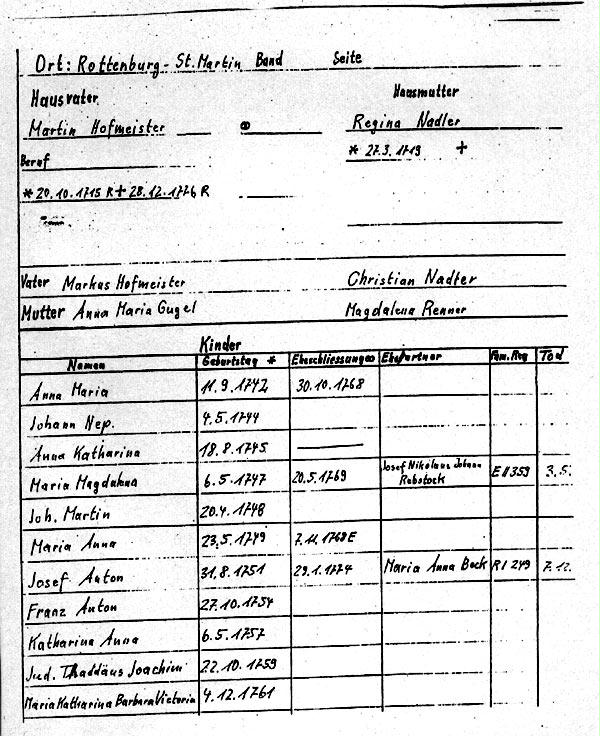 Ort: Rottenburg - St. Martin Band Seite
Hausvater Hausmutter
Martin Hofmeister ⚭ Regina Nadler
Beruf * 27.3.1719 +
* 20.10.1715 R + 28.12.1776 R
Vater Markus Hofmeister Christian Nadler
Mutter Anna Maria Gugel Magdalena Renner
Kinder
Namen Geburtstag * Eheschliessung ⚭ Ehepartner Fam.Reg Tod
Anna Maria 11.9.1742 30.10.1768
Johann Nep. 4.5.1744
Anna Katharina 18.8.1745
Maria Magdalena 6.5.1747 20.5.1769 Josef Nikolaus Johann Rebstock E II 359 3.5.
Joh. Martin 20.4.1748
Maria Anna 23.5.1749 7.11.1768 E
Josef Anton 31.8.1751 29.1.1774 Maria Anna Beck R I 249 7.12.
Franz Anton 27.10.1754
Katharina Anna 6.5.1757
Jud. Thaddäus Joachim 22.10.1759
Maria Katharina Barbara Victoria 4.12.1761